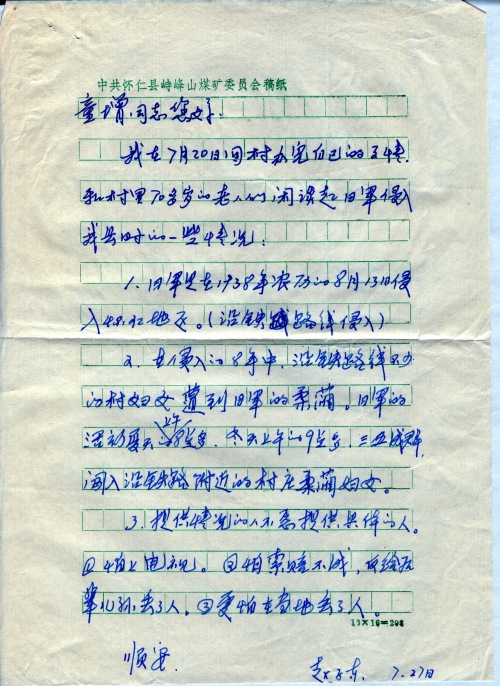 中共怀仁县峙峰山煤矿委员会稿纸
童增同志您好：
我在7月20日回村办完自己的事情，
和村里70多岁的老人们闲谈起日军侵入
我县时的一些情况：
1、日军是在1938年农历的8月13日侵
入怀仁地区。（沿铁路线侵入）
2、在侵入的8年中，沿铁路线
的村妇女遭到日军的柔蔺。日军的
活动夏天上午的8点多，冬天上午的9点多，三五成群，
闯入沿铁路附近的村庄柔蔺妇女。
3、提供情况的人不愿提供具体的人。
①怕上电视。②怕索赔不成，而给后
辈儿孙丢了人。③更怕在当地丢了人。
13×16=208
顺安
赵子东、7、27日